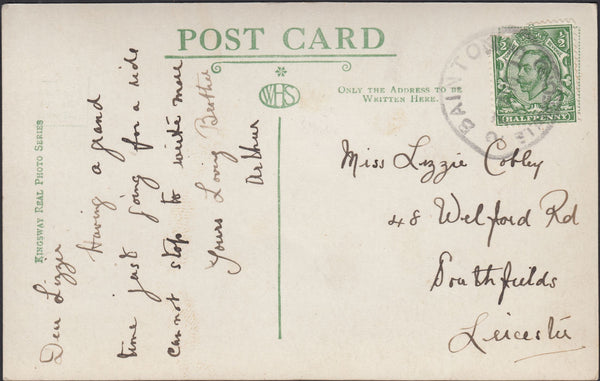 POST CARD
WHS
ONLY THE ADDRESS TO BE
WRITTEN HERE.
KINGSWAY REAL PHOTO SERIES
BAINTON
HALFPENNY
Dear Lizzie
Having a grand
time just going for a ride
cannot stop to write more
Yours Loving Brother
Arthur
Miss Lizzie Cobley
48 Welford Rd
Southfields
Leicester